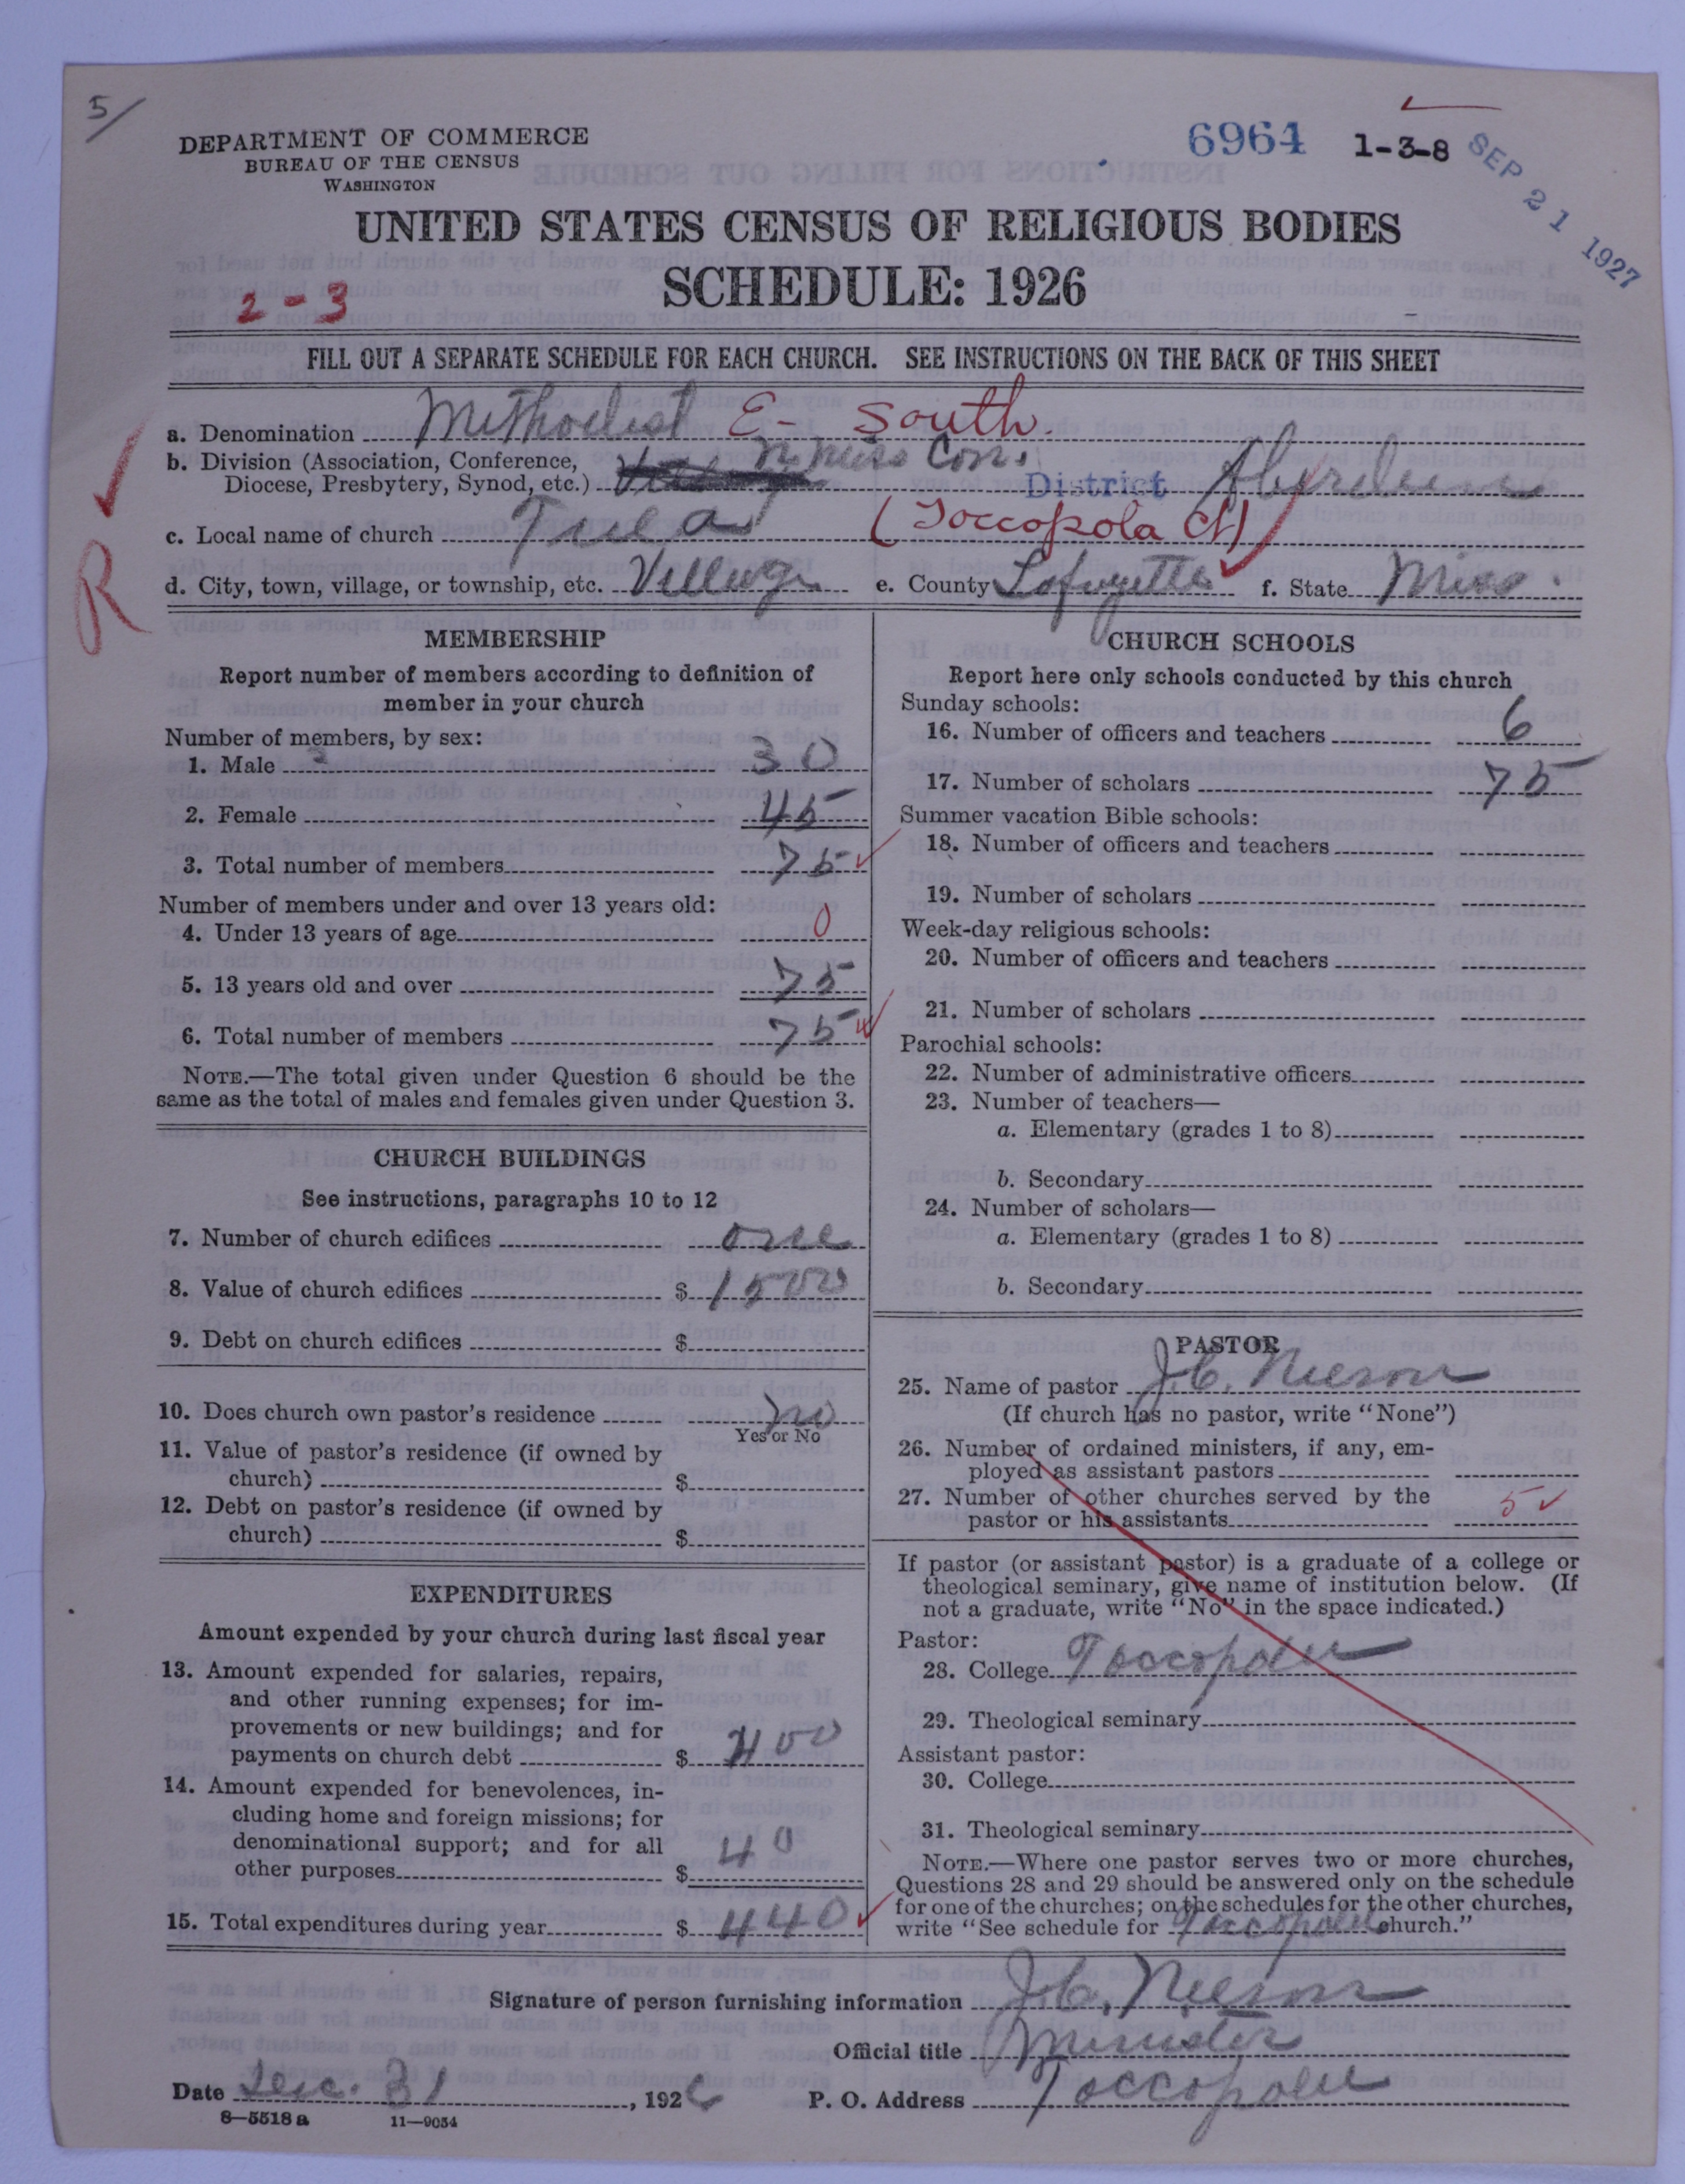 5/
6964 1-3-8 SEP 21 1927
DEPARTMENT OF COMMERCE
BUREAU OF THE CENSUS
WASHINGTON
UNITED STATES CENSUS OF RELIGIOUS BODIES
SCHEDULE: 1926
2-3
FILL OUT A SEPARATE SCHEDULE FOR EACH CHURCH. SEE INSTRUCTIONS ON THE BACK OF THIS SHEET
a. Denomination Methodist E- South
b. Division (Association, Conference, N Miss Con.
Diocese, Presbytery, Synod, etc.) District Aberdeen
c. Local name of church Tula (Toccopola Ct)
R
d. City, town, village, or township, etc. Village e. County Lafayette f. State Miss.
MEMBERSHIP
Report number of members according to definition of
member in your church
Number of members, by sex:
1. Male 30
2. Female 45
3. Total number of members 75
Number of members under and over 13 years old:
4. Under 13 years of age 0
5. 13 years old and over 75
6. Total number of members 75
NOTE.—The total given under Question 6 should be the
same as the total of males and females given under Question 3.
CHURCH BUILDINGS
See instructions, paragraphs 10 to 12
7. Number of church edifices one
8. Value of church edifices $ 1500
9. Debt on church edifices $
10. Does church own pastor's residence no
Yes or No
11. Value of pastor's residence (if owned by
church) $
12. Debt on pastor's residence (if owned by
church) $
EXPENDITURES
Amount expended by your church during last fiscal year
13. Amount expended for salaries, repairs,
and other running expenses; for im-
provements or new buildings; and for
payments on church debt $ 400
14. Amount expended for benevolences, in-
cluding home and foreign missions; for
denominational support; and for all
other purposes $ 40
15. Total expenditures during year $ 440
CHURCH SCHOOLS
Report here only schools conducted by this church
Sunday schools:
16. Number of officers and teachers 6
17. Number of scholars 75
Summer vacation Bible schools:
18. Number of officers and teachers
19. Number of scholars
Week-day religious schools:
20. Number of officers and teachers
21. Number of scholars
Parochial schools:
22. Number of administrative officers
23. Number of teachers—
a. Elementary (grades 1 to 8)
b. Secondary
24. Number of scholars—
a. Elementary (grades 1 to 8)
b. Secondary
PASTOR
25. Name of pastor J. C. Neeson
(If church has no pastor, write "None")
26. Number of ordained ministers, if any, em-
ployed as assistant pastors
27. Number of other churches served by the
pastor or his assistants 5
If pastor (or assistant pastor) is a graduate of a college or
theological seminary, give name of institution below. (If
not a graduate, write "No" in the space indicated.)
Pastor:
28. College Toccopola
29. Theological seminary
Assistant pastor:
30. College
31. Theological seminary
NOTE.—Where one pastor serves two or more churches,
Questions 28 and 29 should be answered only on the schedule
for one of the churches; on the schedules for the other churches,
write "See schedule for Toccopola church."
Signature of person furnishing information J. C. Neeson
Official title Minister
Date Dec. 31, 1926 P. O. Address Toccopola
8—5518 a 11—9054